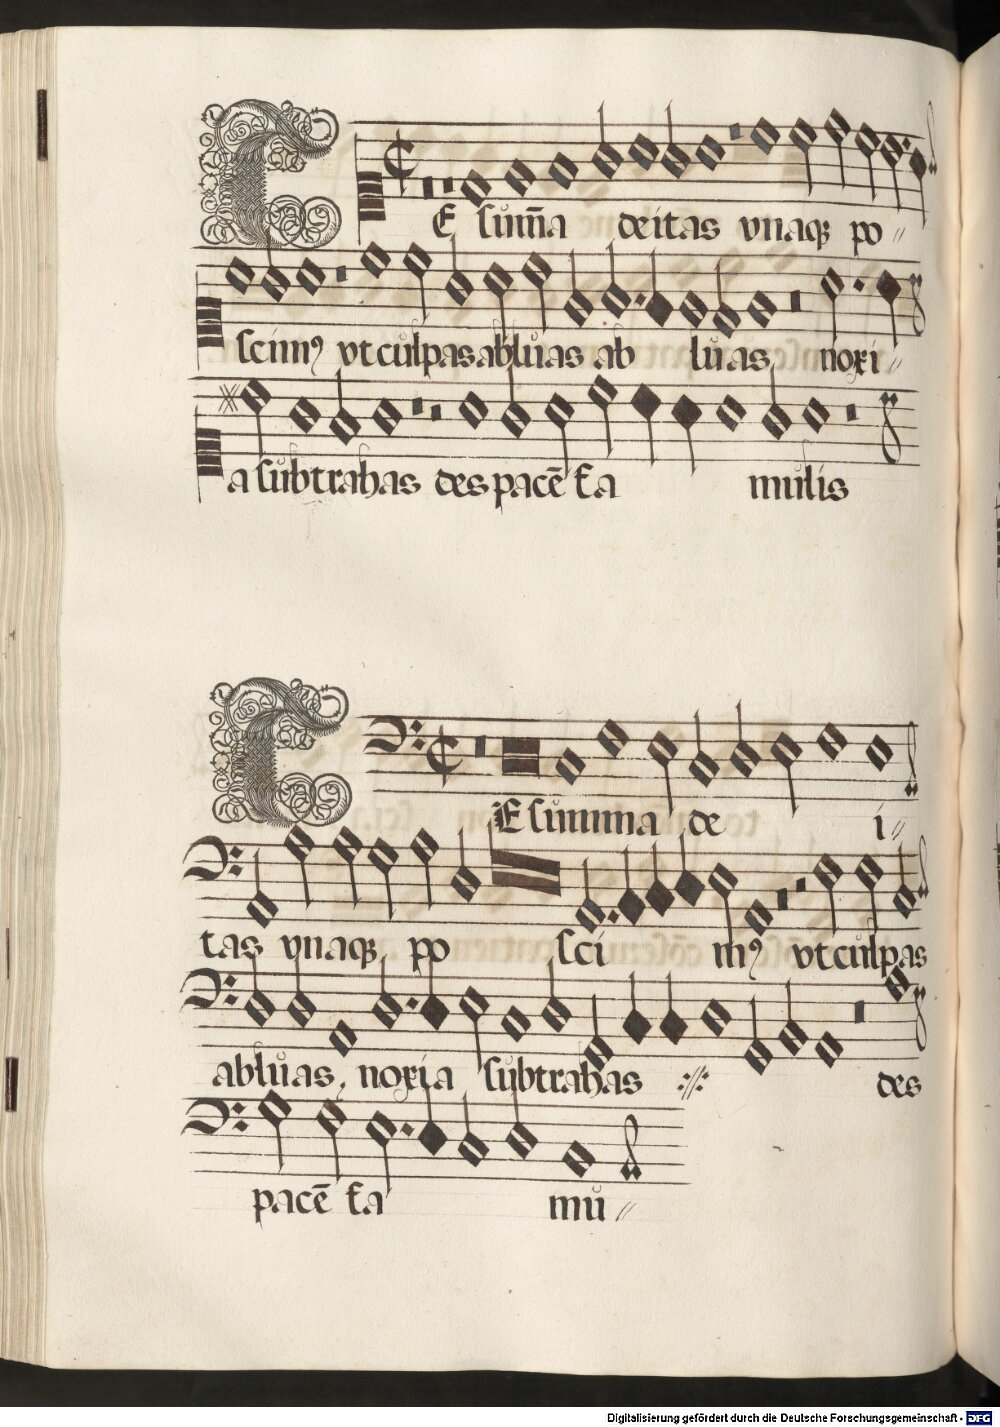 TE sum̄a deitas vnaqʒ po〃
scimꝰ vt culpas abluas ab luas, noxi〃
a subtrahas des pacē fa mulis
TE summa de i〃
tas vnaqʒ po sci mꝰ vt culpas
abluas, noxia subtrahas :〃: des
pacē fa mu〃
Digitalisierung gefördert durch die Deutsche Forschungsgemeinschaft - DFG